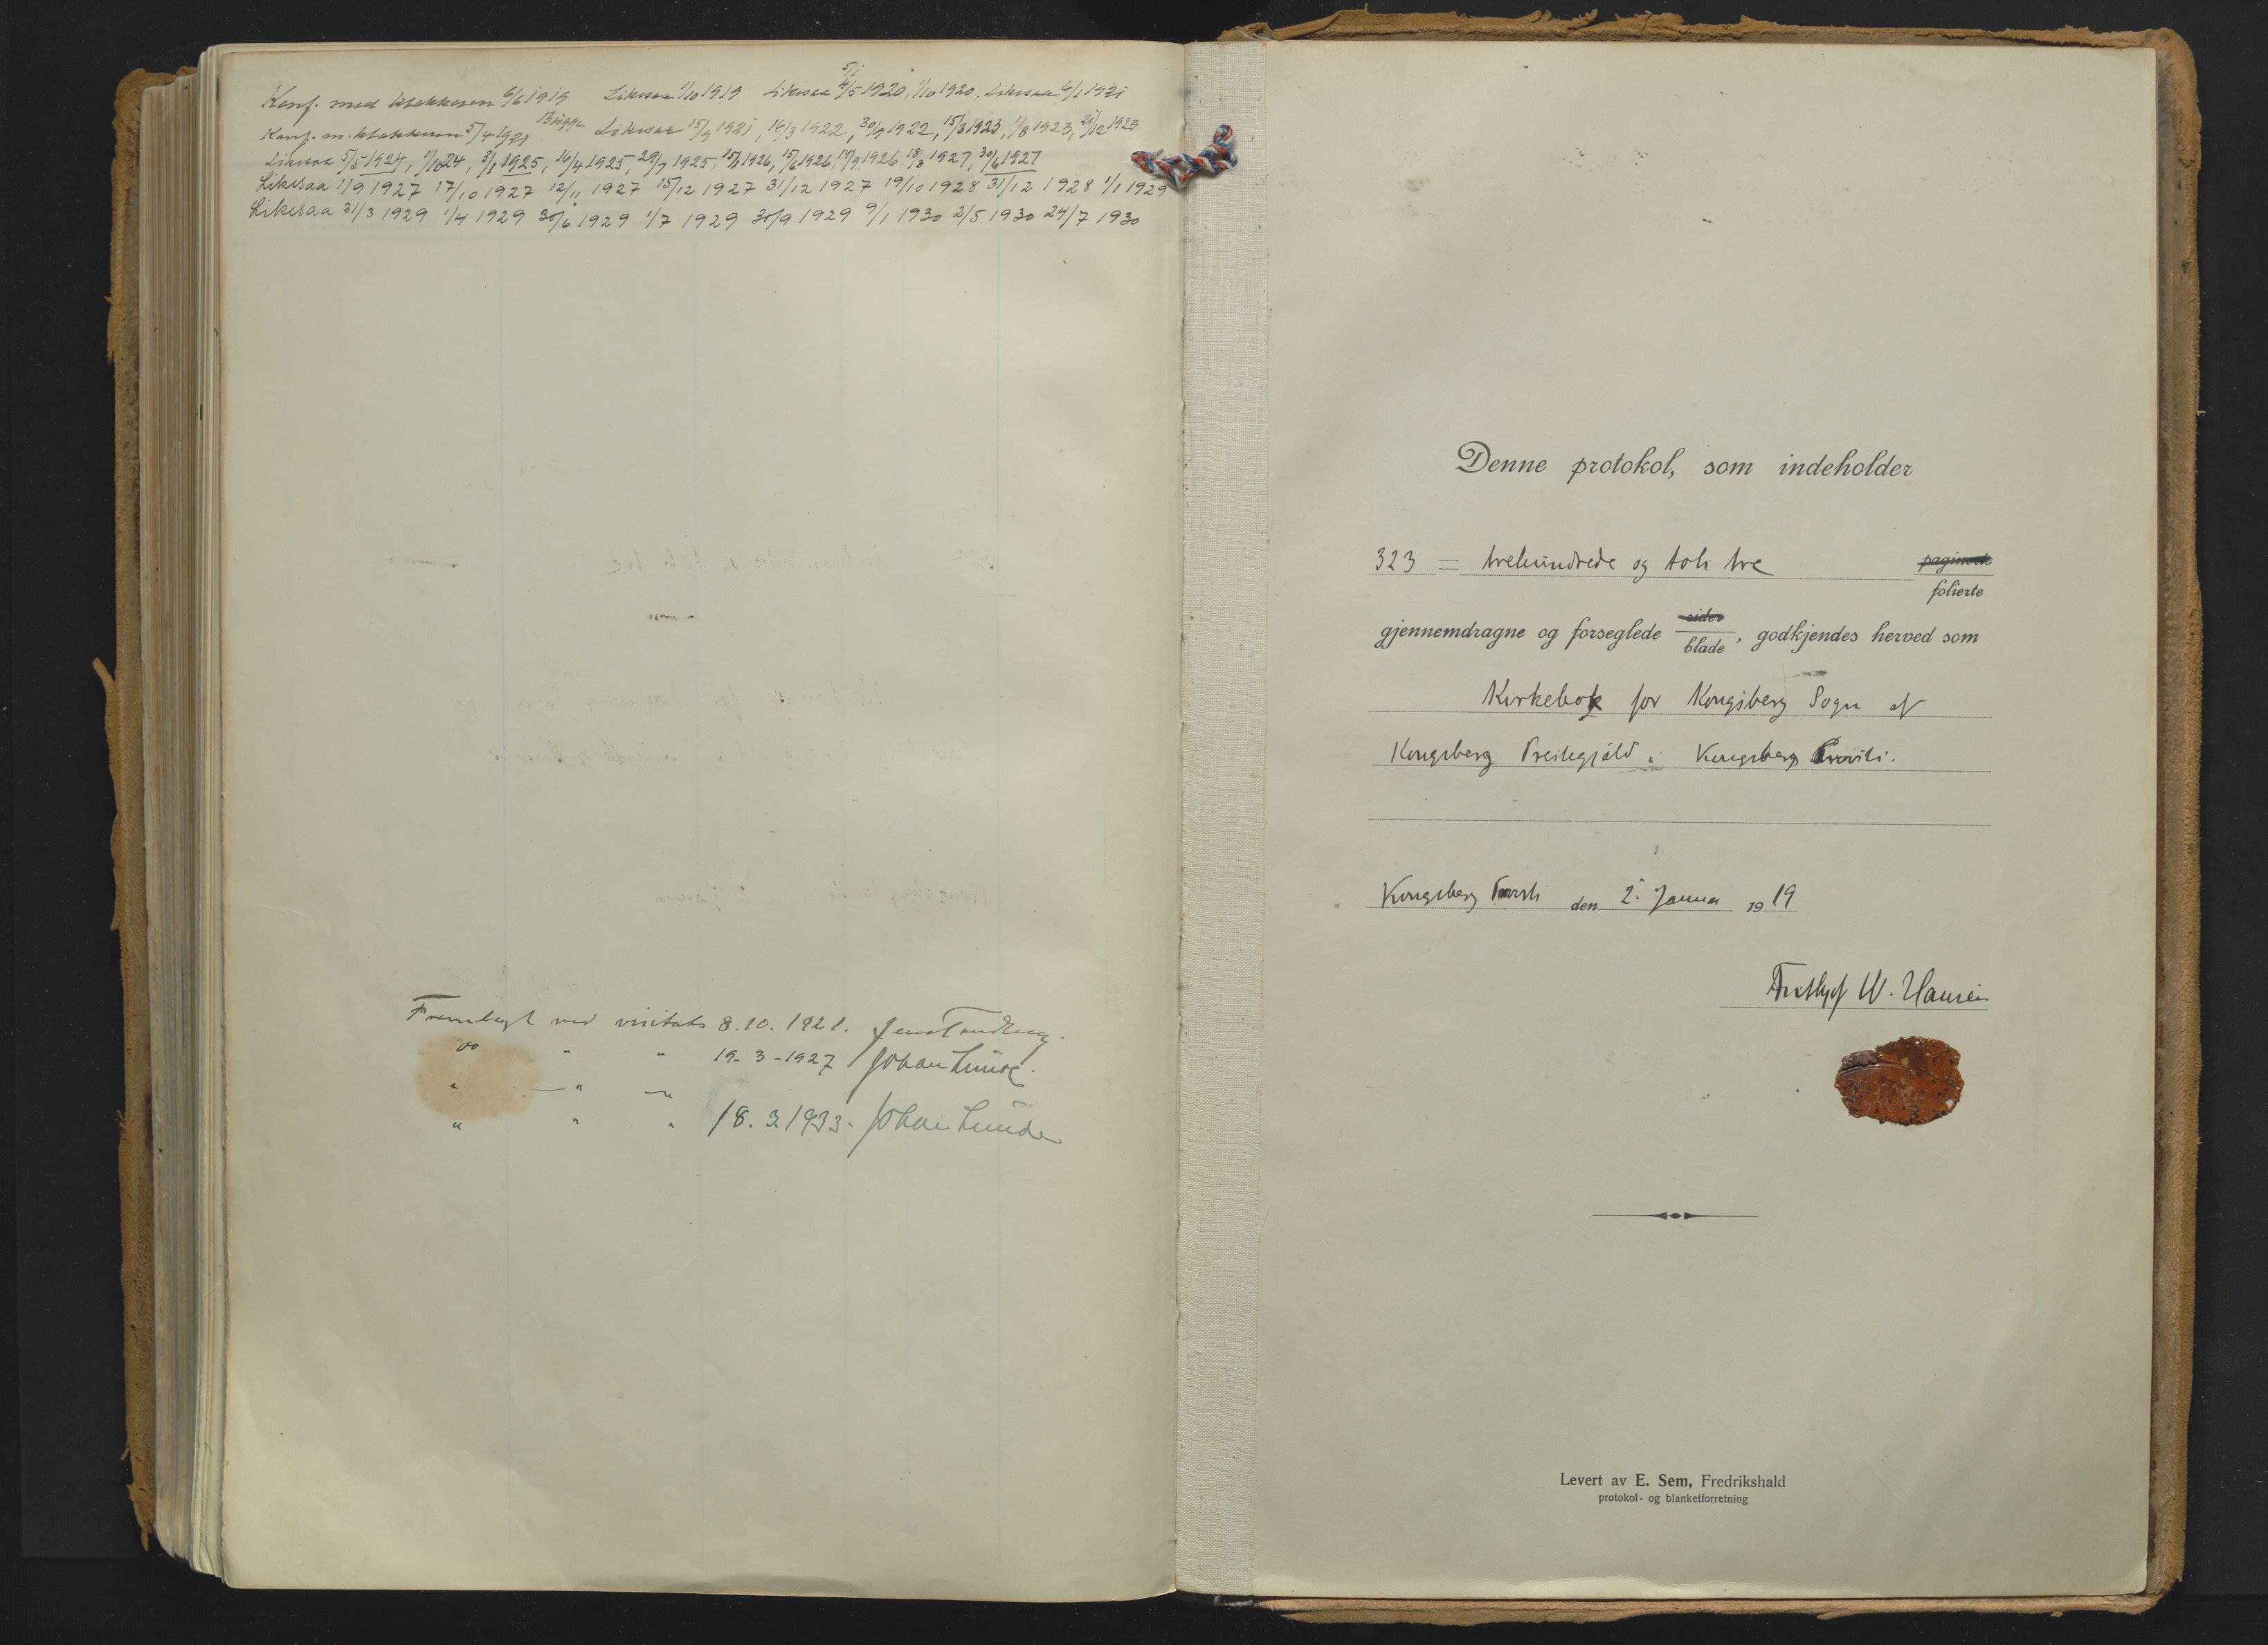 Konf. med klokkeren 6/6 1919 Likesaa 1/10 1919 Likesaa 4/5 1920, 1/10 1920. Likesaa 6/1 1921
5/1
Konf. m. klokkeren 5/4 1921 Likesaa 15/9 1921, 14/3 1922, 30/9 1922, 15/3 1923, 1/8 1923, 21/12 1923
Likesaa 5/5 1924, 1/10 24, 3/1 1925, 16/4 1925, 29/7 1925, 15/1 1926, 15/6 1926, 14/9 1926, 18/3 1927, 30/6 1927
Likesaa 1/9 1927 17/10 1927 12/11 1927 15/12 1927 31/12 1927 19/10 1928 31/12 1928 1/1 1929
Likesaa 31/3 1929 1/4 1929 30/6 1929 1/7 1929 30/9 1929 9/1 1930 2/5 1930 24/7 1930
Fremlagt ved visitats 8.10.1921. Jens Tandberg.
do " " 19-3-1927 Johan Lunde.
" — " — "
" " " 18.3.1933. Johan Lunde
Denne protokol, som indeholder
323 = trehundrede og toti tre paginerte
folierte
gjennemdragne og forseglede sider
blade, godkjendes herved som
Kirkebok for Kongsberg Sogn af
Kongsberg Prestegjæld i Kongsberg Provsti.
Kongsberg Provsti den 2. Januar 1919
Fridtjof W. Hansen
Levert av E. Sem, Fredrikshald
protokol- og blanketforretning